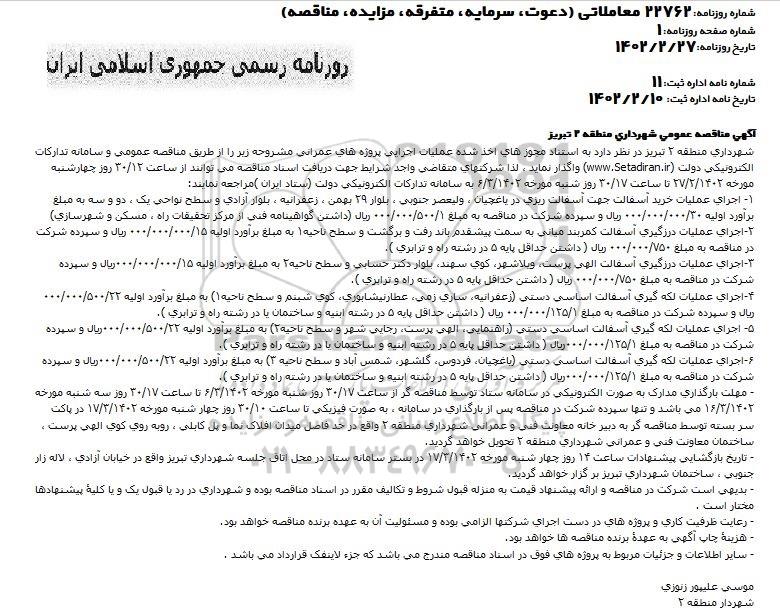 شماره روزنامه: ۲۲۷۶۲ معاملاتی (دعوت، سرمایه، متفرقه، مزایده، مناقصه)
شماره صفحه روزنامه: ۱
تاریخ روزنامه: ۱۴۰۲/۲/۲۷
روزنامه رسمی جمهوری اسلامی ایران
شماره نامه اداره ثبت: ۱۱
تاریخ نامه اداره ثبت: ۱۴۰۲/۲/۱۰
آگهي مناقصه عمومي شهرداري منطقه ۲ تبريز
شهرداري منطقه ۲ تبريز در نظر دارد به استناد مجوز هاي اخذ شده عمليات اجرايي پروژه هاي عمراني مشروحه زير را از طريق مناقصه عمومي و سامانه تداركات
الكترونيكي دولت (www.Setadiran.ir) واگذار نمايد ، لذا شركتهاي متقاضي واجد شرايط جهت دريافت اسناد مناقصه مي توانند از ساعت ۳۰/۱۲ روز چهارشنبه
مورخه ۲۷/۲/۱۴۰۲ تا ساعت ۳۰/۱۷ روز شنبه مورخه ۶/۳/۱۴۰۲ به سامانه تداركات الكترونيكي دولت (ستاد ايران )مراجعه نمايند:
۱- اجراي عمليات خريد آسفالت جهت آسفالت ريزي در باغچيان ، وليعصر جنوبي ، بلوار ۲۹ بهمن ، زعفرانيه ، بلوار آزادي و سطح نواحي يک ، دو و سه به مبلغ
برآورد اوليه ۰۰۰/۰۰۰/۰۰۰/۳۰ ريال و سپرده شركت در مناقصه به مبلغ ۰۰۰/۰۰۰/۵۰۰/۱ ريال (داشتن گواهينامه فني از مركز تحقيقات راه ، مسكن و شهرسازي)
۲-اجراي عمليات درزگيري آسفالت كمربند مياني به سمت پيشقدم باند رفت و برگشت و سطح ناحيه۱ به مبلغ برآورد اوليه ۰۰۰/۰۰۰/۰۰۰/۱۵ ريال و سپرده شركت
در مناقصه به مبلغ ۰۰۰/۰۰۰/۷۵۰ ريال ( داشتن حداقل پايه ۵ در رشته راه و ترابري ).
۳-اجراي عمليات درزگيري آسفالت الهي پرست، ويلاشهر، كوي سهند، بلوار دكتر حسابي و سطح ناحيه۲ به مبلغ برآورد اوليه ۰۰۰/۰۰۰/۰۰۰/۱۵ريال و سپرده
شركت در مناقصه به مبلغ ۰۰۰/۰۰۰/۷۵۰ ريال ( داشتن حداقل پايه ۵ در رشته راه و ترابري ).
۴-اجراي عمليات لكه گيري آسفالت اساسي دستي (زعفرانيه، ساري زمي، عطارنيشابوري، كوي شبنم و سطح ناحيه۱) به مبلغ برآورد اوليه ۰۰۰/۰۰۰/۵۰۰/۲۲
ريال و سپرده شركت در مناقصه به مبلغ ۰۰۰/۰۰۰/۱۲۵/۱ ريال ( داشتن حداقل پايه ۵ در رشته ابنيه و ساختمان يا در رشته راه و ترابري ).
۵- اجراي عمليات لكه گيري آسفالت اساسي دستي (راهنمايي، الهي پرست، رجايي شهر و سطح ناحيه۲) به مبلغ برآورد اوليه ۰۰۰/۰۰۰/۵۰۰/۲۲ريال و سپرده
شركت در مناقصه به مبلغ ۰۰۰/۰۰۰/۱۲۵/۱ريال ( داشتن حداقل پايه ۵ در رشته ابنيه و ساختمان يا در رشته راه و ترابري ).
۶-اجراي عمليات لكه گيري آسفالت اساسي دستي (باغچيان، فردوس، گلشهر، شمس آباد و سطح ناحيه ۳) به مبلغ برآورد اوليه ۰۰۰/۰۰۰/۵۰۰/۲۲ريال و سپرده
شركت در مناقصه به مبلغ ۰۰۰/۰۰۰/۱۲۵/۱ريال ( داشتن حداقل پايه ۵ در رشته ابنيه و ساختمان يا در رشته راه و ترابري ).
- مهلت بارگذاري مدارک به صورت الكترونيكي در سامانه ستاد توسط مناقصه گر از ساعت ۳۰/۱۷ روز شنبه مورخه ۶/۳/۱۴۰۲ تا ساعت ۳۰/۱۷ روز سه شنبه مورخه
۱۶/۳/۱۴۰۲ مي باشد و تنها سپرده شركت در مناقصه پس از بارگذاري در سامانه ، به صورت فيزيكي تا ساعت ۳۰/۱۰ روز چهار شنبه مورخه ۱۷/۳/۱۴۰۲ در پاكت
سر بسته توسط مناقصه گر به دبير خانه معاونت فني و عمراني شهرداري منطقه ۲ واقع در حد فاصل ميدان افلاک نما و پل كابلي ، روبه روي كوي الهي پرست ،
ساختمان معاونت فني و عمراني شهرداري منطقه ۲ تحويل خواهد گرديد.
- تاريخ بازگشايي پيشنهادات ساعت ۱۴ روز چهار شنبه مورخه ۱۷/۳/۱۴۰۲ در بستر سامانه ستاد در محل اتاق جلسه شهرداري تبريز واقع در خيابان آزادي ، لاله زار
جنوبي ، ساختمان شهرداري تبريز بر گزار خواهد گرديد.
- بديهي است شركت در مناقصه و ارائه پيشنهاد قيمت به منزله قبول شروط و تكاليف مقرر در اسناد مناقصه بوده و شهرداري در رد يا قبول يک و يا كليهٔ پيشنهادها
مختار است .
- رعايت ظرفيت كاري و پروژه هاي در دست اجراي شركتها الزامي بوده و مسئوليت آن به عهده برنده مناقصه خواهد بود.
- هزينهٔ چاپ آگهي به عهدهٔ برنده مناقصه ها خواهد بود.
- ساير اطلاعات و جزئيات مربوط به پروژه هاي فوق در اسناد مناقصه مندرج مي باشد كه جزء لاينفک قرارداد مي باشد .
موسي عليپور زنوزي
شهردار منطقه ۲